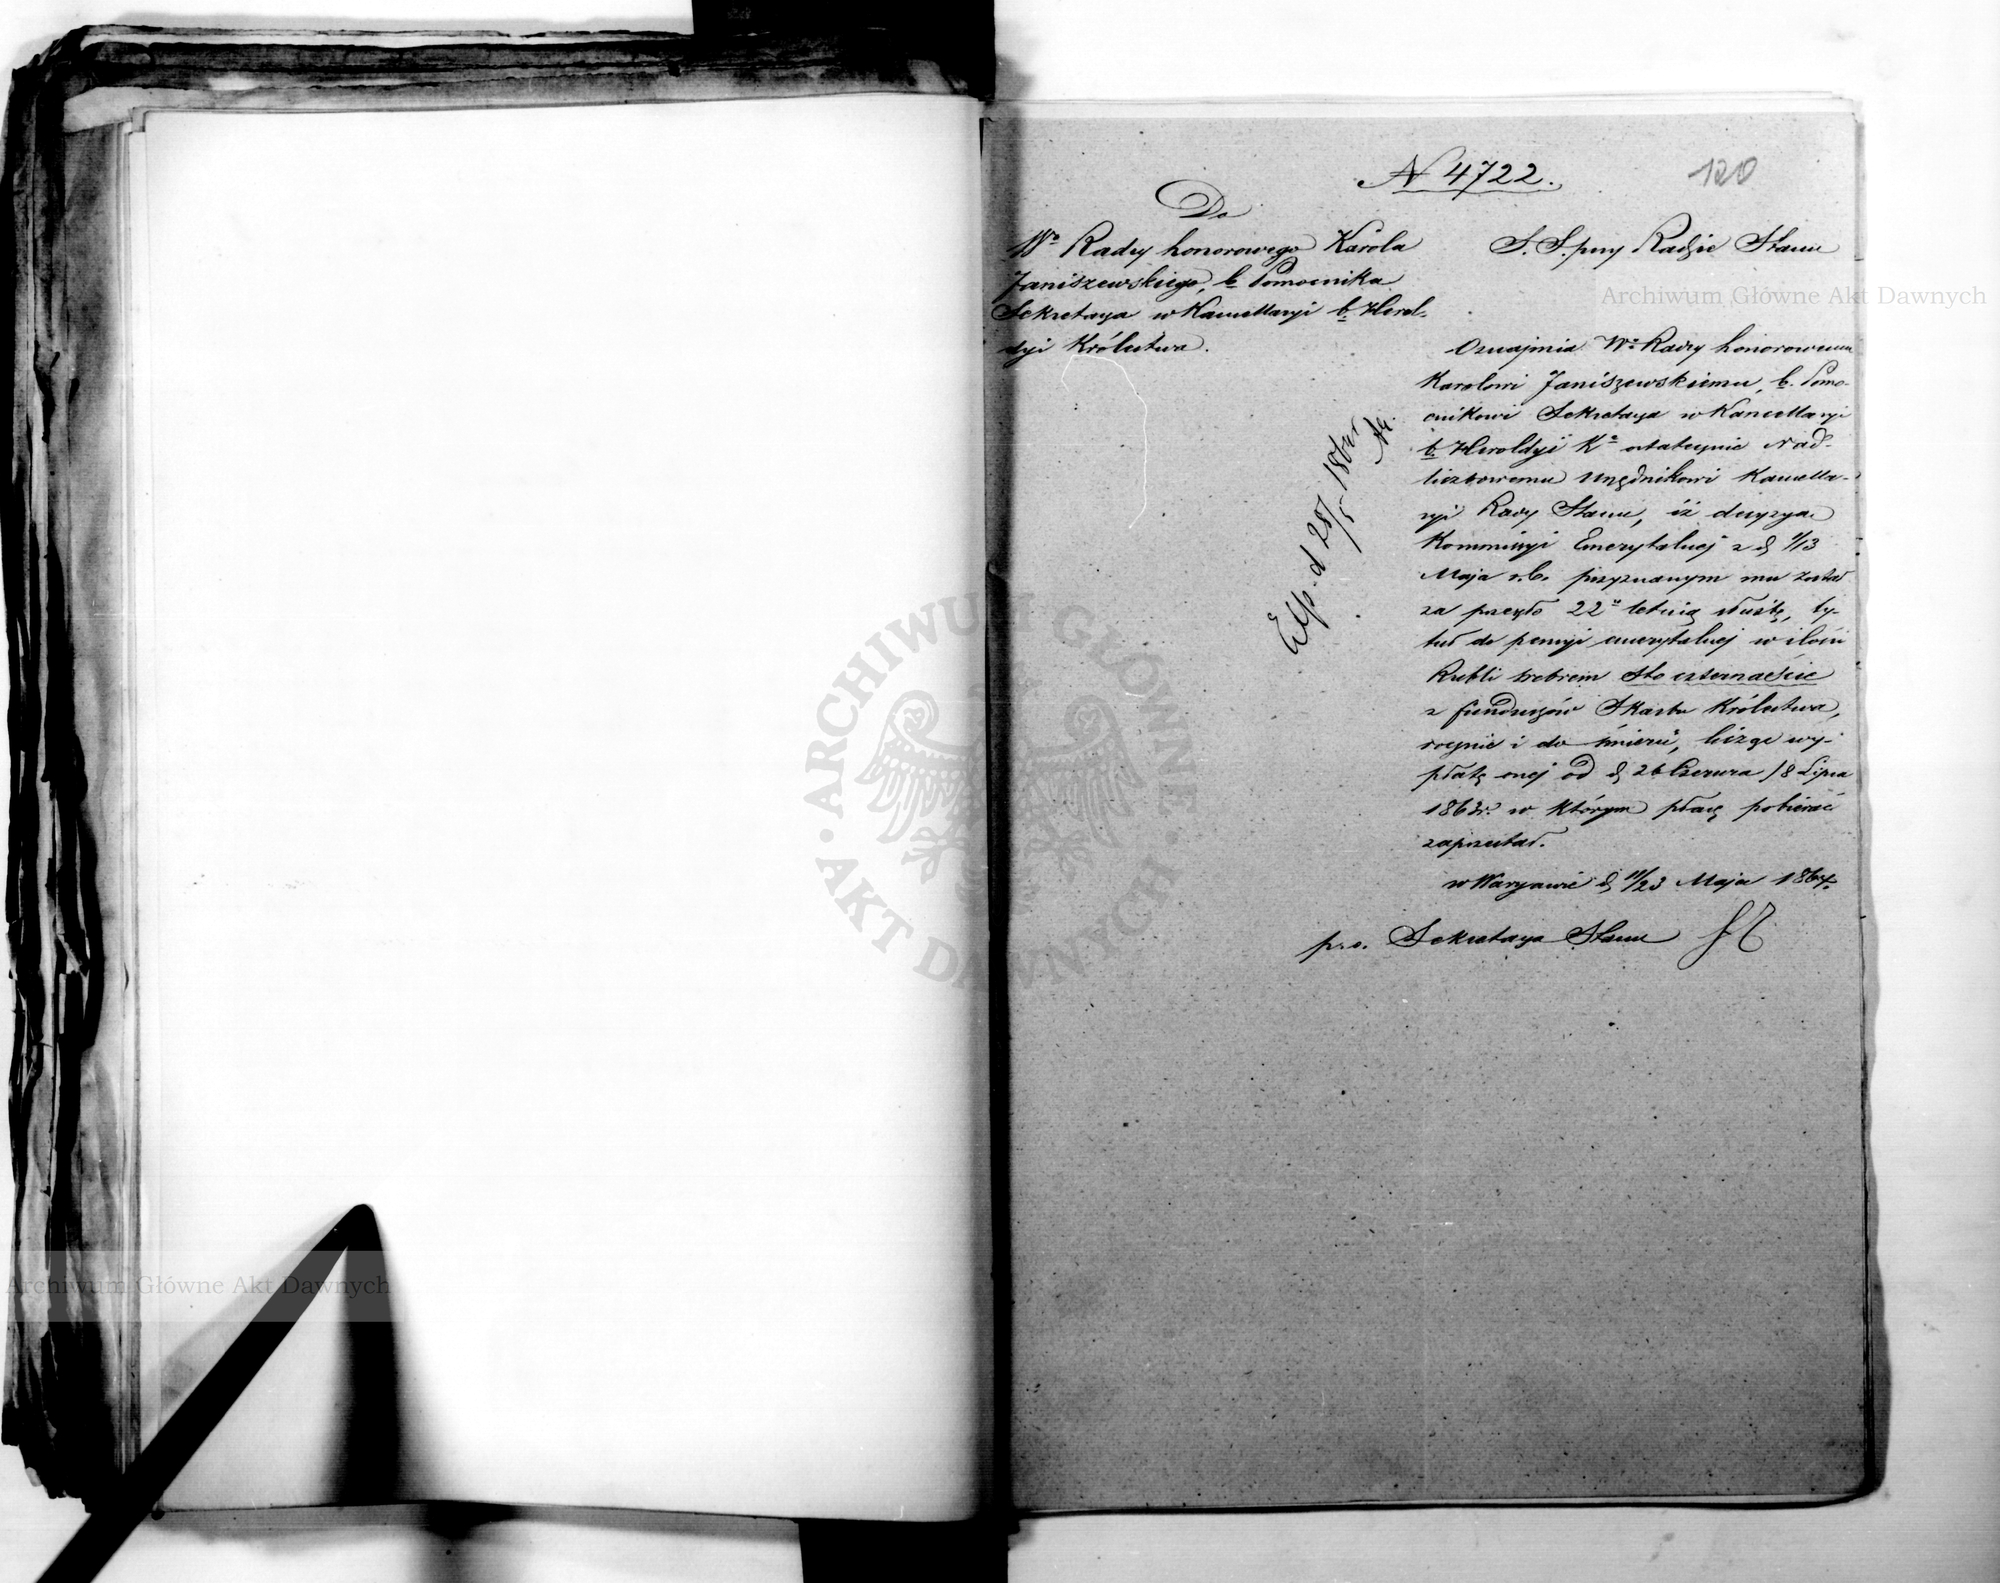 N 4722.
120
Do
Wo Radcy honorowego Karola
Janiszewskiego, b. Pomocnika
Sekretarza w Kancellaryi b. Herol-
dyi Królestwa.
S. S. przy Radzie Stanu
Oznajmia Wo Radcy honorowemu
Karolowi Janiszewskiemu, b. Pomo-
cnikowi Sekretarza w Kancellaryi
b. Heroldyi Ka ostatecznie Nad-
liczbowemu Urzędnikowi Kancella-
ryi Rady Stanu, iż decyzyą
Kommissyi Emerytalnej z d. 1/13
Maja r.b. przyznanym mu został
za przeszło 22u letnią służbę, ty-
tuł do pensyi emerytalnej w ilości
Rubli srebrem Sto czternaście
z funduszów Skarbu Królestwa,
rocznie i do śmierci, licząc wy-
płatę onej od d. 26 Czerwca / 8 Lipca
1863 r. w którym płacę pobierać
zaprzestał.
w Warszawie d. 11/23 Maja 1864.
p.o. Sekretarza Stanu
Exp. d. 28/5 1864 r
ARCHIWUM GŁÓWNE · AKT DAWNYCH ·
Archiwum Główne Akt Dawnych
Archiwum Główne Akt Dawnych